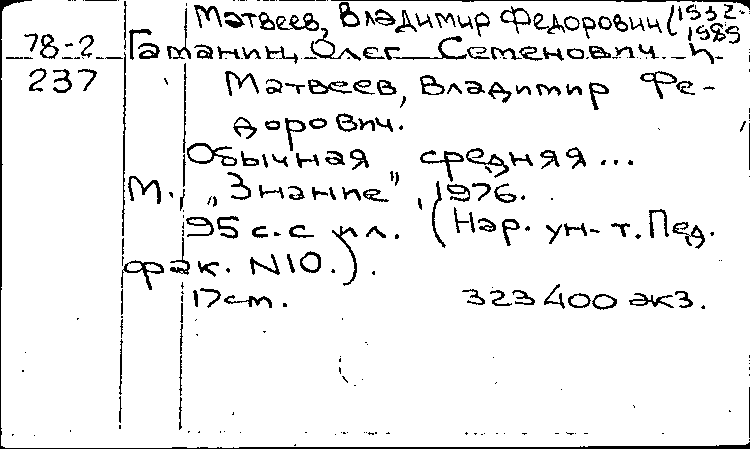 Матвеев, Владимир Федорович (1932-
1989
78-2 Гаманин, Олег Семенович и
237 Матвеев, Владимир Фе-
дорович.
Обычная средняя...
М., „Знание”, 1976.
95 с. с ил. (Нар. ун-т. Пед.
фак. N10.).
17 см. 323400 экз.